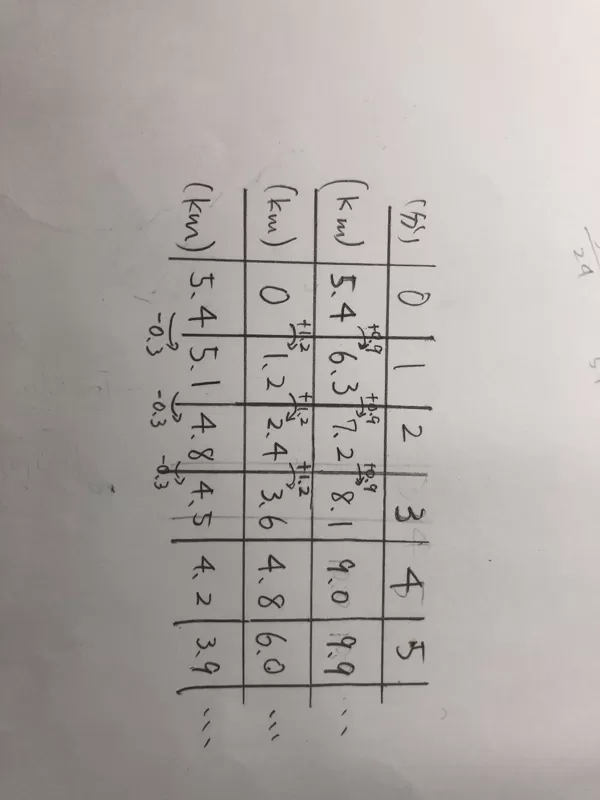 (分) 0 1 2 3 4 5
+0.9 +0.9 +0.9
(km) 5.4 6.3 7.2 8.1 9.0 9.9 ...
+1.2 +1.2 +1.2
(km) 0 1.2 2.4 3.6 4.8 6.0 ...
(km) 5.4 5.1 4.8 4.5 4.2 3.9 ...
-0.3 -0.3 -0.3
24